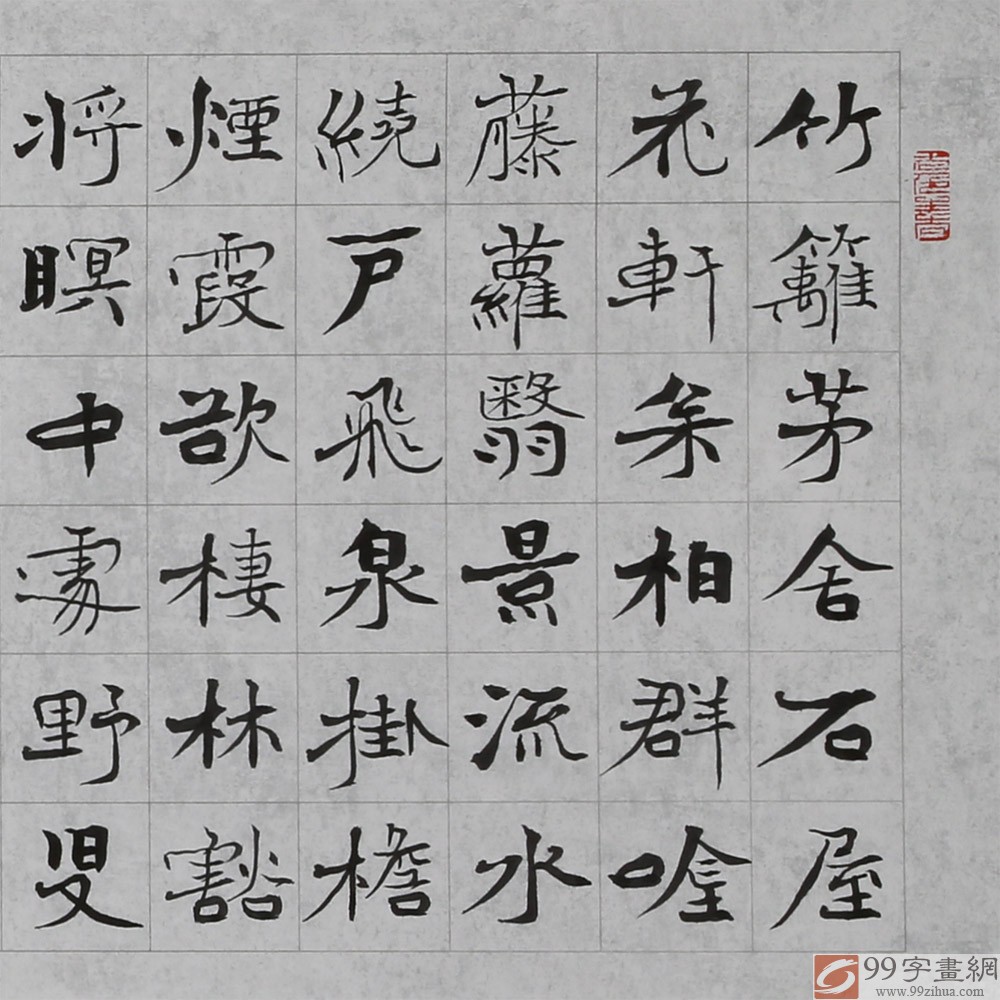 竹籬茅舍石屋
花軒枀柏群唫
藤蘿翳景流水
繞戶飛泉掛檐
煙霞欲棲林豁
將暝中處野叟
99字畫網
www.99zihua.com